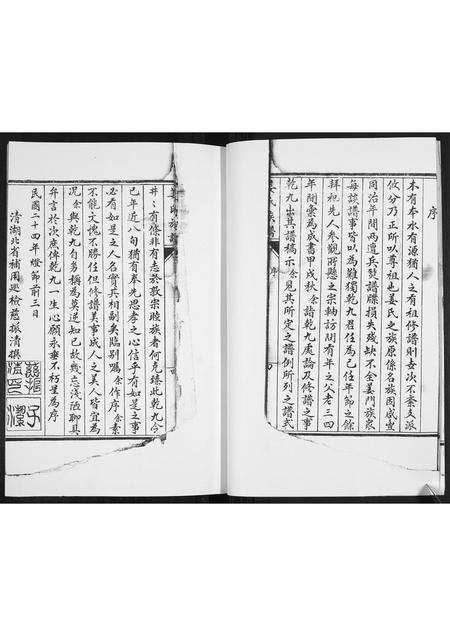 序
木有本水有源猶人之有祖修譜則支次不紊支派
攸分乃正所以尊祖也姜氏之族原係名族因咸豐
同治年間兩遭兵燹譜牒損失殘缺不全姜門族衆
每談譜事皆以為難獨乾九君任為己任年節之餘
拜祖先人參觀所懸之宗軸訪問有年之人老三四
年間彙為成書甲戌秋余詣乾九處論及修譜之事
乾九出其譜稿示余見其所定之譜例所列之譜式
姜氏族譜 序
井井有條非有志於敦宗睦族者何克臻此乾九今
已年近八旬猶有奉先思孝之心信乎有如是之事
必有如是之人名實其相副矣臨別囑余作序余素
不能文愧不勝任但修譜美事成人之美人皆宜為
况余與乾九自芴稱為莫逆知己故幾忘淺陋聊具
弁言於次庶俾乾九一生心願永垂不朽是為序
民國二十四年燈節前三日
清湖北省補用巡檢慈振清撰